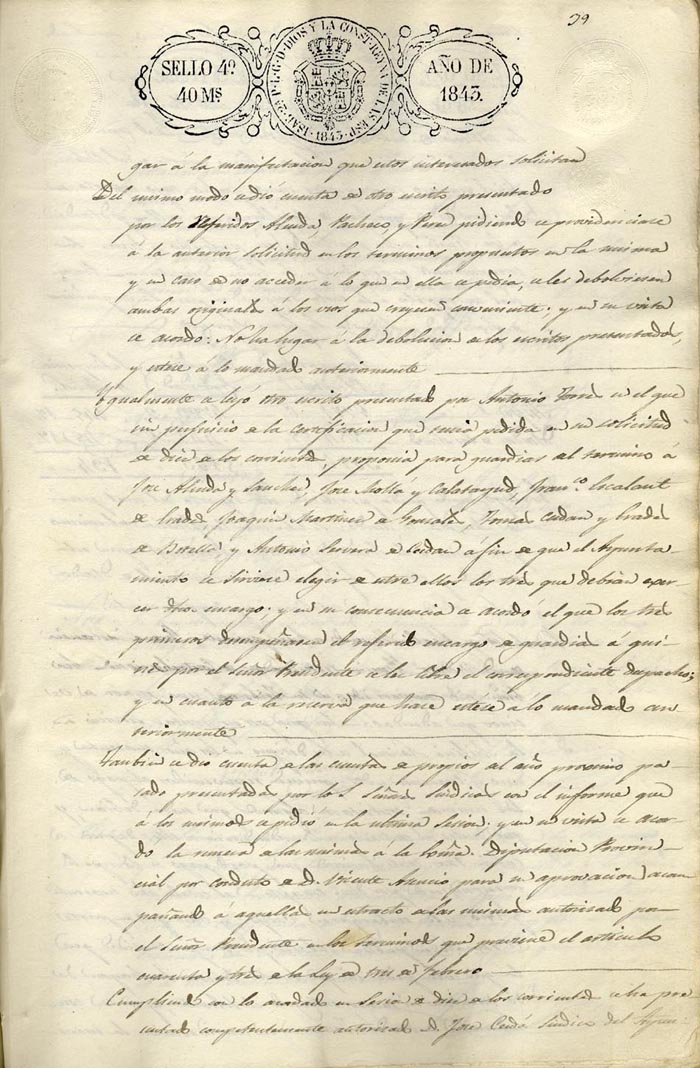 39
SELLO 4º. 40 Ms.
ISAB. 2A. P. L. G. D. DIOS Y LA CONST. REYNA DE LAS ESP. 1843.
AÑO DE 1843.
gar á la manifestacion que estos interesados solicitan
Del mismo modo se dió cuenta de otro escrito presentado
por los referidos Almida Pacheco y Pere pidiendo se providenciase
á la anterior solicitud en los terminos propuestos en la misma
y en caso de no acceder á lo que en ella se pedia, se les debolviesen
ambas originales á los usos que creyesen conveniente; y en su vista
se acordo: No ha lugar á la debolucion de los escritos presentados,
y estese á lo mandado anteriormente
Ygualmente se leyó otro escrito presentado por Antonio Torres en el que
sin perjuicio de la certificacion que tenia pedida en su solicitud
de diez de los corrientes, proponia para guardias del termino á
José Almida y Sanchez, Jose Mollá y Calatayud, Franco. Escolant
de Prades, Joaquin Martinez de Gonzalez, Tomas Cerdan y Prades
de Botella y Antonio Servera de Cerdan á fin de que el Ayunta-
miento se sirviese elegir de entre ellos los tres que debian exer-
cer dho. encargo; y en su consecuencia se acordó el que los tres
primeros desempeñasen el referido encargo de guardias á qui-
nes por el Señor Presidente se les libre el correspondiente despacho;
y en cuanto á la reserva que hace estese á lo mandado an-
teriormente
Tambien se dio cuenta de las cuentas de propios del año proximo pa-
sado presentadas por los S. Señores Sindicos con el informe que
á los mismos se pidió en la ultima Sesion; y en su vista se acor-
dó la remesa de las mismas á la Exma. Diputacion Provin-
cial por conducto de D. Vicente Asencio para su aprovacion acom-
pañando á aquellas un extracto de las mismas autorizado por
el Señor Presidente en los terminos que previene el articulo
cuarenta y tres de la Ley de tres de febrero
Cumpliendo con lo acordado en Sesion de diez de los corrientes se ha pre-
sentado competentemente autorizado D. Jose Cerdá Sindico del Ayun-